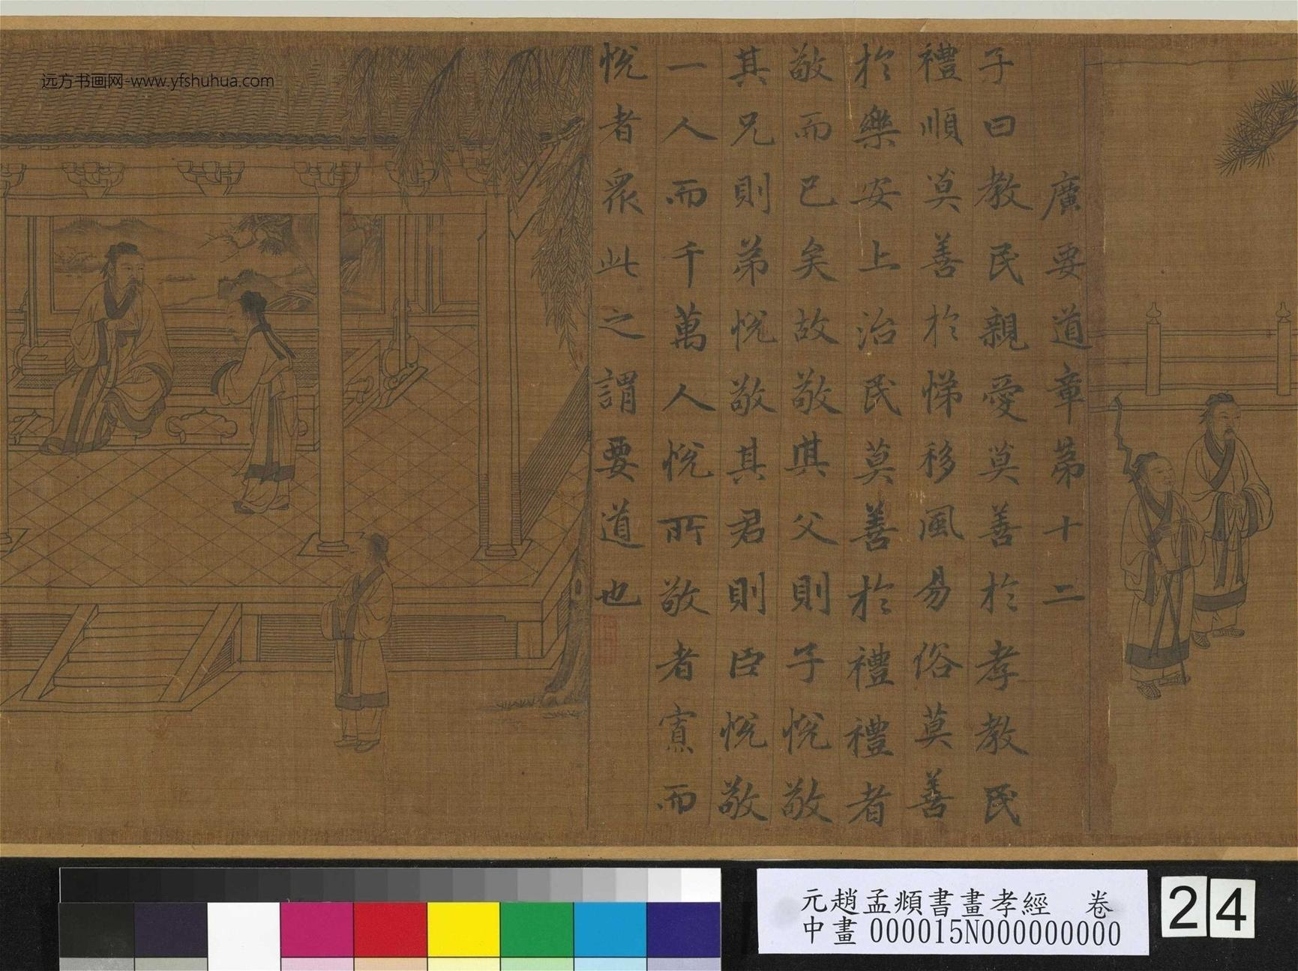 远方书画网-www.yfshuhua.com
廣要道章第十二
子曰教民親愛莫善於孝教民
禮順莫善於悌移風易俗莫善
於樂安上治民莫善於禮禮者
敬而已矣故敬其父則子悅敬
其兄則弟悅敬其君則臣悅敬
一人而千萬人悅所敬者寡而
悅者眾此之謂要道也
元趙孟頫書畫孝經 卷
中畫 000015N000000000
24